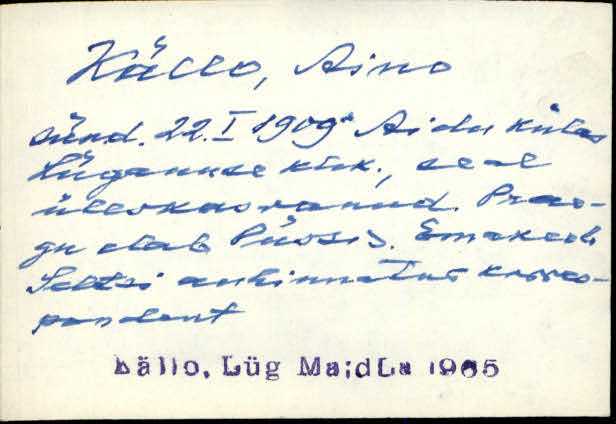 Källo, Aino
sünd. 22. I 1909 Aidu külas
Lüganuse khk., seal
üleskasvanud. Prae-
gu elab Püssis. Emakeele
Seltsi auhinnatud korres-
pondent
Källo, Lüg Maidla 1965